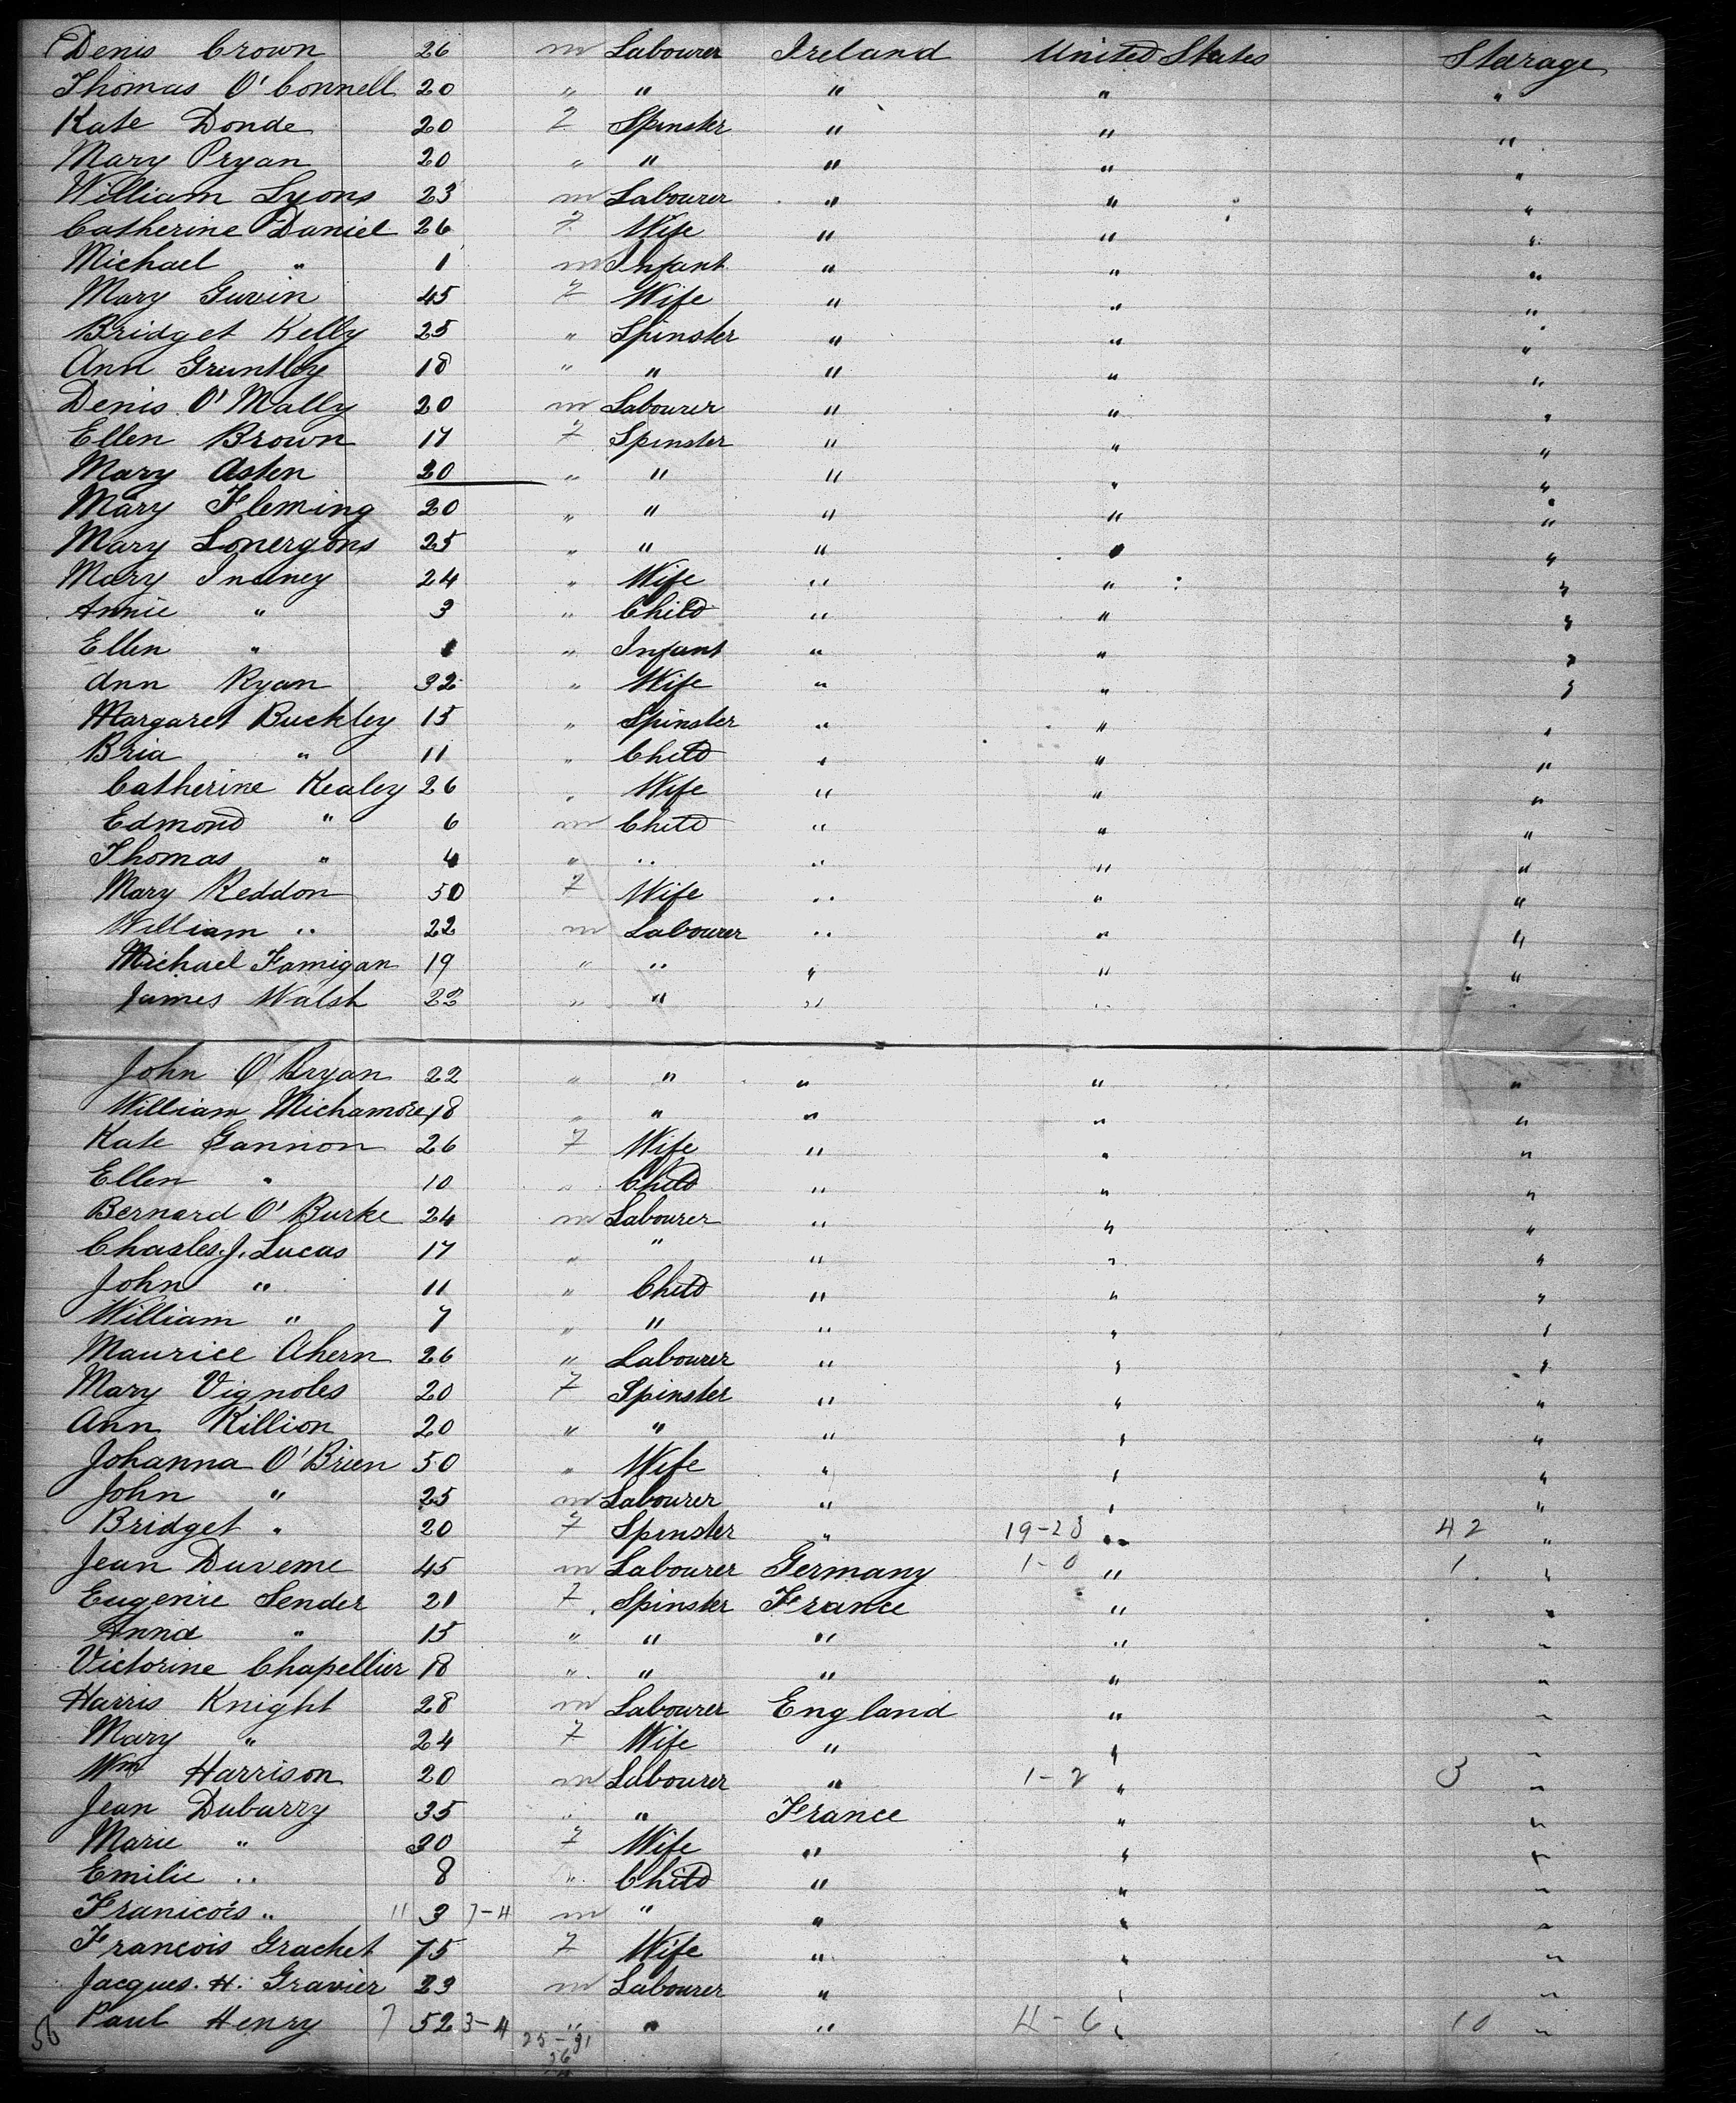 Denis Crown 26 m Labourer Ireland United States Stearage
Thomas O'Connell 20 " " " " "
Kate Donde 20 f Spinster " " "
Mary Pryan 20 " " " " "
William Lyons 23 m Labourer " " "
Catherine Daniel 26 f Wife " " "
Michael " 1 m Infant " " "
Mary Gavin 45 f Wife " " "
Bridget Kelly 25 " Spinster " " "
Ann Gruntley 18 " " " " "
Denis O'Mally 20 m Labourer " " "
Ellen Brown 17 f Spinster " " "
Mary Asten 20 " " " " "
Mary Fleming 20 " " " " "
Mary Lonergons 25 " " " " "
Mary Inaney 24 " Wife " " "
Annie " 3 " Child " " "
Ellen " 1 " Infant " " "
Ann Ryan 32 " Wife " " "
Margaret Buckley 15 " Spinster " " "
Bria " 11 " Child " " "
Catherine Kealey 26 " Wife " " "
Edmond " 6 m Child " " "
Thomas " 4 " " " " "
Mary Reddon 50 f Wife " " "
William " 22 m Labourer " " "
Michael Famigan 19 " " " " "
James Walsh 22 " " " " "
John O'Bryan 22 " " " " "
William Michamore 18 " " " " "
Kate Gannon 26 f Wife " " "
Ellen " 10 " Child " " "
Bernard O'Burke 24 m Labourer " " "
Charles. J. Lucas 17 " " " " "
John " 11 " Child " " "
William " 7 " " " " "
Maurice Ahern 26 " Labourer " " "
Mary Vignoles 20 f Spinster " " "
Ann Killion 20 " " " " "
Johanna O'Brien 50 " Wife " " "
John " 25 m Labourer " " "
Bridget " 20 f Spinster " 19-23 " 42 "
Jean Duveme 45 m Labourer Germany 1-0 " 1 "
Eugenie Sender 21 f Spinster France " "
Anna " 15 " " " " "
Victorine Chapellier 18 " " " " "
Harris Knight 28 m Labourer England " "
Mary " 24 f Wife " " "
Wm Harrison 20 m Labourer " 1-2 " 3 "
Jean Dubarry 35 " " France " "
Marie " 30 f Wife " " "
Emilie " 8 " Child " " "
Franicois " 11 3 7-4 m " " " "
Francois Grachet 75 f Wife " " "
Jacques. H. Gravier 23 m Labourer " " "
Paul Henry 7 52 3-4 " " " 4-6 " 10 "
56 25-31